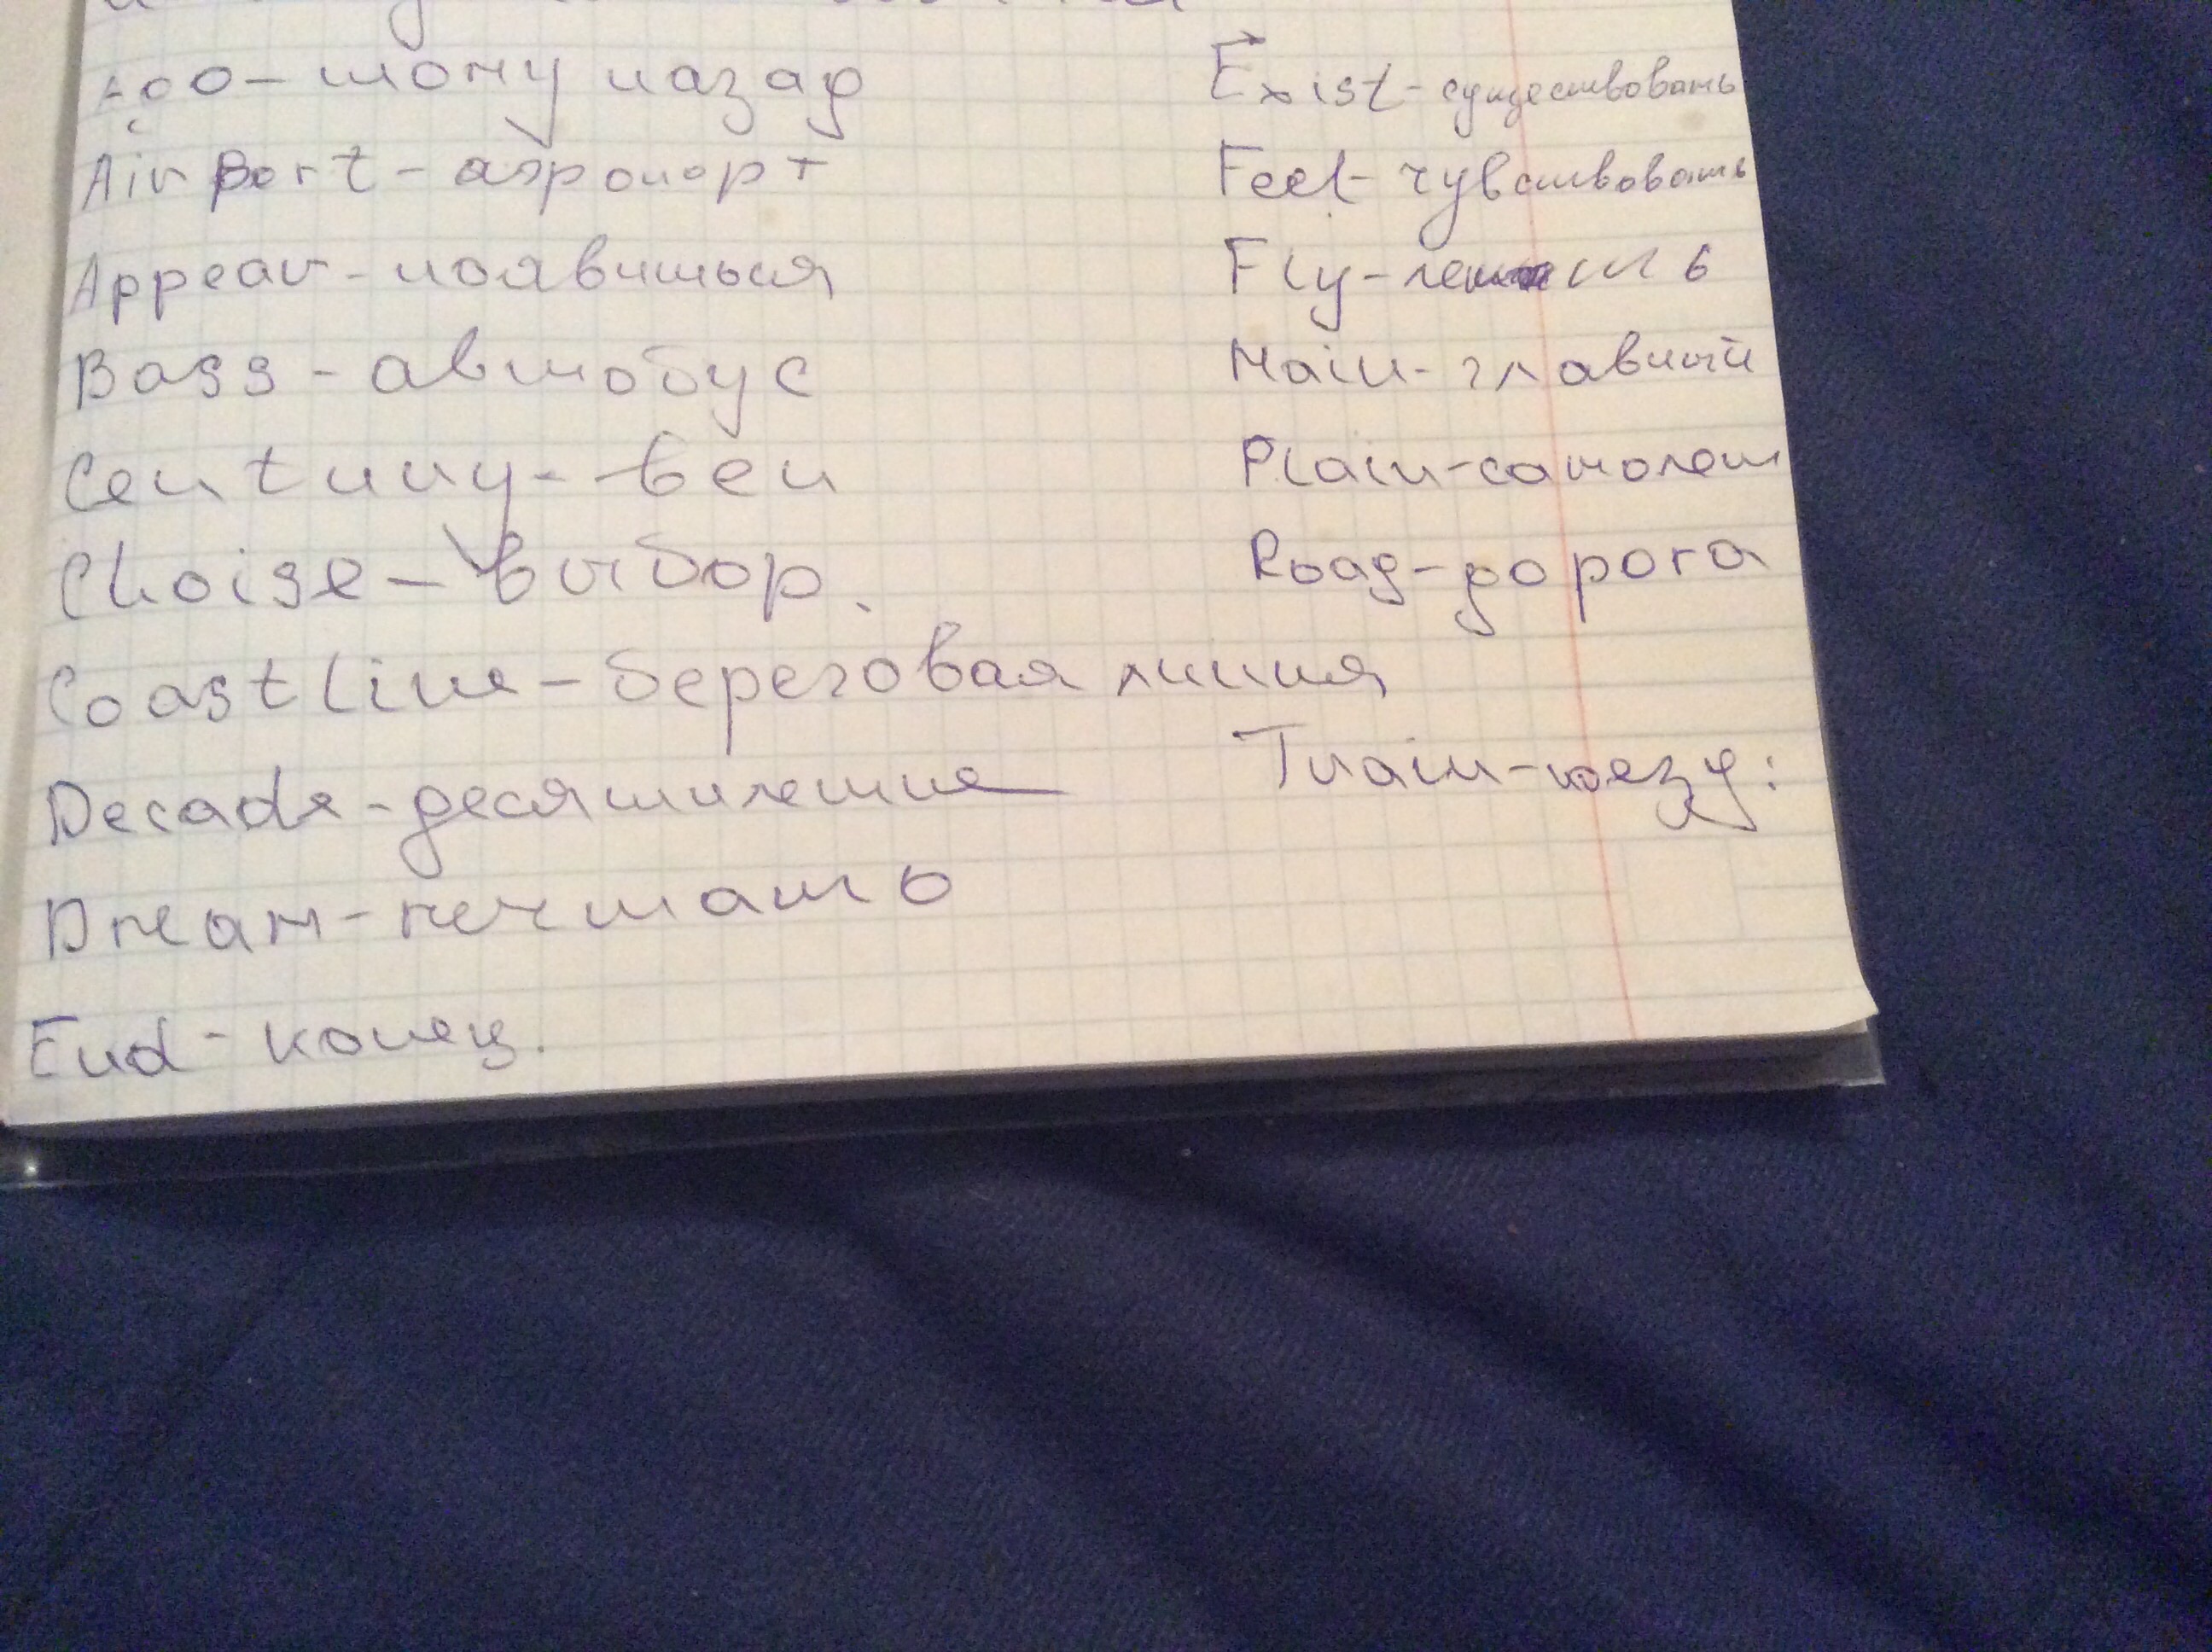 Ago - тому назад
Airport - аэропорт
Appear - появиться
Bass - автобус
Century - век
Choise - выбор.
Coastline - береговая линия
Decade - десятилетие
Dream - мечтать
End - конец.
Exist - существовать
Feel - чувствовать
Fly - лететь
Main - главный
Plain - самолет
Road - дорога
Train - поезд: